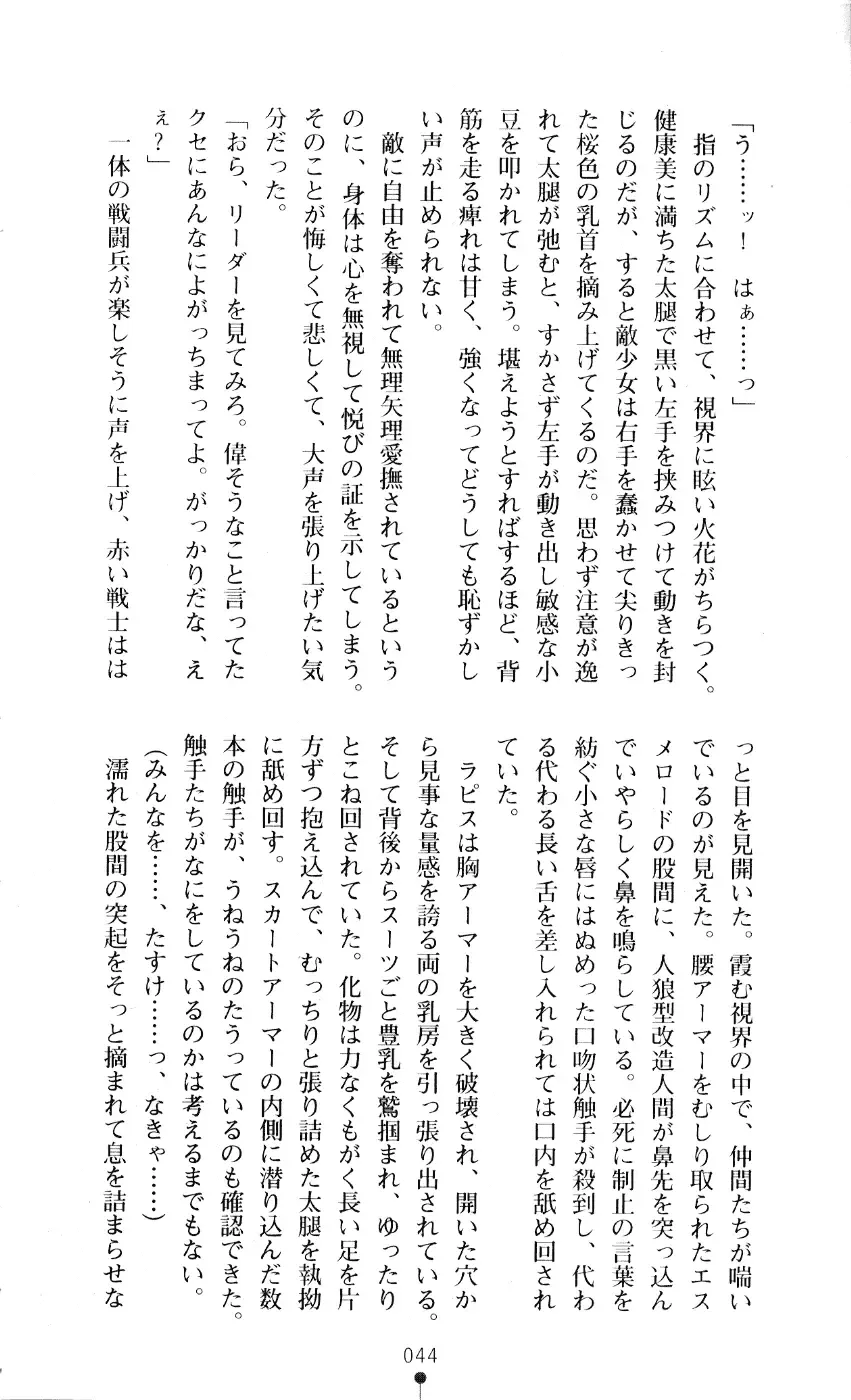 「う……ッ！　はぁ……っ」
指のリズムに合わせて、視界に眩い火花がちらつく。
健康美に満ちた太腿で黒い左手を挟みつけて動きを封
じるのだが、すると敵少女は右手を蠢かせて尖りきっ
た桜色の乳首を摘み上げてくるのだ。思わず注意が逸
れて太腿が弛むと、すかさず左手が動き出し敏感な小
豆を叩かれてしまう。堪えようとすればするほど、背
筋を走る痺れは甘く、強くなってどうしても恥ずかし
い声が止められない。
敵に自由を奪われて無理矢理愛撫されているという
のに、身体は心を無視して悦びの証を示してしまう。
そのことが悔しくて悲しくて、大声を張り上げたい気
分だった。
「おら、リーダーを見てみろ。偉そうなこと言ってた
クセにあんなによがっちまってよ。がっかりだな、え
ぇ？」
一体の戦闘兵が楽しそうに声を上げ、赤い戦士はは
っと目を見開いた。霞む視界の中で、仲間たちが喘い
でいるのが見えた。腰アーマーをむしり取られたエス
メロードの股間に、人狼型改造人間が鼻先を突っ込ん
でいやらしく鼻を鳴らしている。必死に制止の言葉を
紡ぐ小さな唇にはぬめった口吻状触手が殺到し、代わ
る代わる長い舌を差し入れられては口内を舐め回され
ていた。
ラピスは胸アーマーを大きく破壊され、開いた穴か
ら見事な量感を誇る両の乳房を引っ張り出されている。
そして背後からスーツごと豊乳を鷲掴まれ、ゆったり
とこね回されていた。化物は力なくもがく長い足を片
方ずつ抱え込んで、むっちりと張り詰めた太腿を執拗
に舐め回す。スカートアーマーの内側に潜り込んだ数
本の触手が、うねうねのたうっているのも確認できた。
触手たちがなにをしているのかは考えるまでもない。
（みんなを……、たすけ……っ、なきゃ……）
濡れた股間の突起をそっと摘まれて息を詰まらせな
044